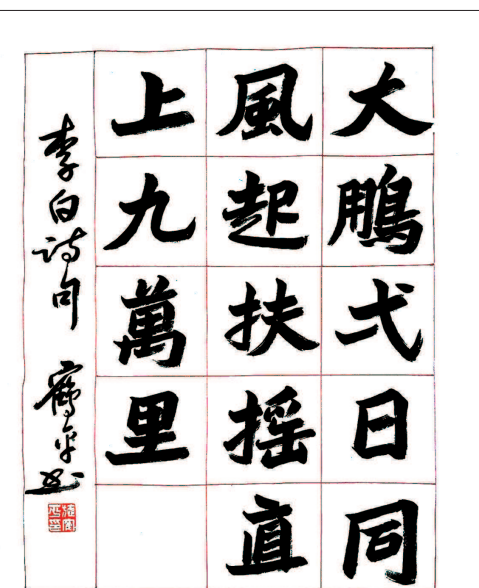 大鵬弌日同
風起扶摇直
上九萬里
李白詩句 鶴书